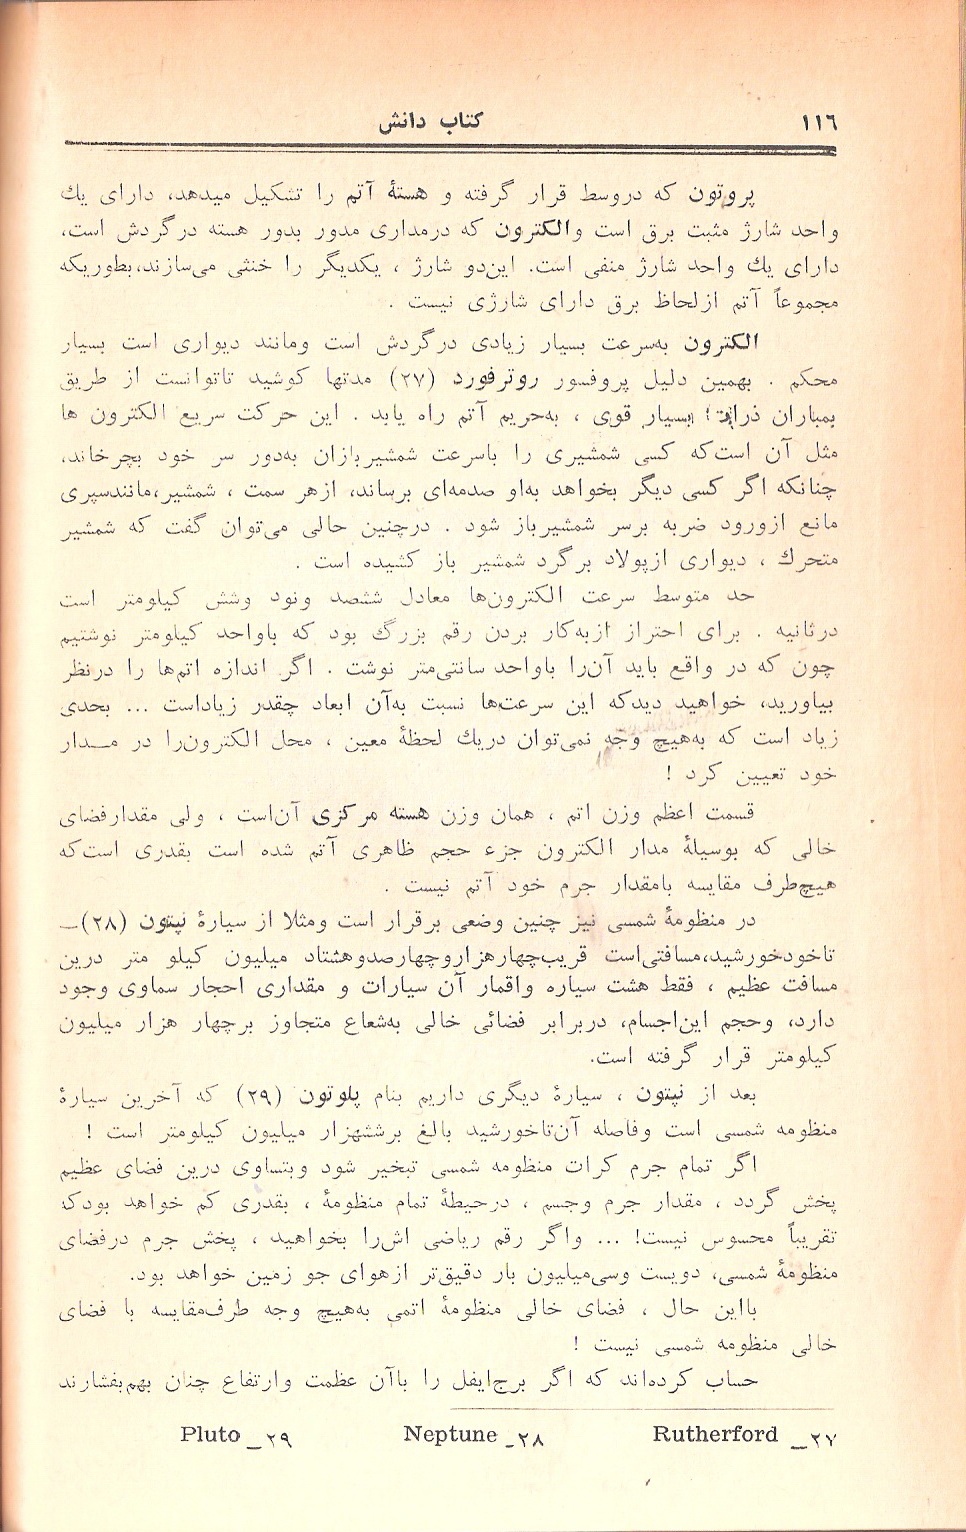 ۱۱٦ کتاب دانش
پروتون که دروسط قرار گرفته و هستهٔ آتم را تشکیل میدهد، دارای یك
واحد شارژ مثبت برق است والکترون که درمداری مدور بدور هسته درگردش است،
دارای یك واحد شارژ منفی است. این‌دو شارژ ، یکدیگر را خنثی می‌سازند،بطوریکه
مجموعاً آتم ازلحاظ برق دارای شارژی نیست .
الکترون به‌سرعت بسیار زیادی درگردش است ومانند دیواری است بسیار
محکم . بهمین دلیل پروفسور روترفورد (۲۷) مدتها کوشید تاتوانست از طریق
بمباران ذرات بسیار قوی ، به‌حریم آتم راه یابد . این حرکت سریع الکترون ها
مثل آن است‌که کسی شمشیری را باسرعت شمشیربازان به‌دور سر خود بچرخاند،
چنانکه اگر کسی دیگر بخواهد به‌او صدمه‌ای برساند، ازهر سمت ، شمشیر،مانندسپری
مانع ازورود ضربه برسر شمشیرباز شود . درچنین حالی می‌توان گفت که شمشیر
متحرك ، دیواری ازپولاد برگرد شمشیر باز کشیده است .
حد متوسط سرعت الکترون‌ها معادل ششصد ونود وشش کیلومتر است
درثانیه . برای احتراز ازبه‌کار بردن رقم بزرگ بود که باواحد کیلومتر نوشتیم
چون که در واقع باید آن‌را باواحد سانتی‌متر نوشت . اگر اندازه اتم‌ها را درنظر
بیاورید، خواهید دیدکه این سرعت‌ها نسبت به‌آن ابعاد چقدر زیاداست ... بحدی
زیاد است که به‌هیچ وجه نمی‌توان دریك لحظهٔ معین ، محل الکترون‌را در مـدار
خود تعیین کرد !
قسمت اعظم وزن اتم ، همان وزن هسته مرکزی آن‌است ، ولی مقدارفضای
خالی که بوسیلهٔ مدار الکترون جزء حجم ظاهری آتم شده است بقدری است‌که
هیچ‌طرف مقایسه بامقدار جرم خود آتم نیست .
در منظومهٔ شمسی نیز چنین وضعی برقرار است ومثلا از سیارهٔ نپتون (۲۸)ـ
تاخودخورشید،مسافتی‌است قریب‌چهارهزاروچهارصدوهشتاد میلیون کیلو متر درین
مسافت عظیم ، فقط هشت سیاره واقمار آن سیارات و مقداری احجار سماوی وجود
دارد، وحجم این‌اجسام، دربرابر فضائی خالی به‌شعاع متجاوز برچهار هزار میلیون
کیلومتر قرار گرفته است.
بعد از نپتون ، سیارهٔ دیگری داریم بنام پلوتون (۲۹) که آخرین سیارهٔ
منظومه شمسی است وفاصله آن‌تاخورشید بالغ برششهزار میلیون کیلومتر است !
اگر تمام جرم کرات منظومه شمسی تبخیر شود وبتساوی درین فضای عظیم
پخش گردد ، مقدار جرم وجسم ، درحیطهٔ تمام منظومهٔ ، بقدری کم خواهد بودکه
تقریباً محسوس نیست! ... واگر رقم ریاضی اش‌را بخواهید ، پخش جرم درفضای
منظومهٔ شمسی، دویست وسی‌میلیون بار دقیق‌تر ازهوای جو زمین خواهد بود.
بااین حال ، فضای خالی منظومهٔ اتمی به‌هیچ وجه طرف‌مقایسه با فضای
خالی منظومه شمسی نیست !
حساب کرده‌اند که اگر برج‌ایفل را باآن عظمت وارتفاع چنان بهم‌بفشارند
۲۷ـ Rutherford ۲۸ـ Neptune ۲۹ـ Pluto